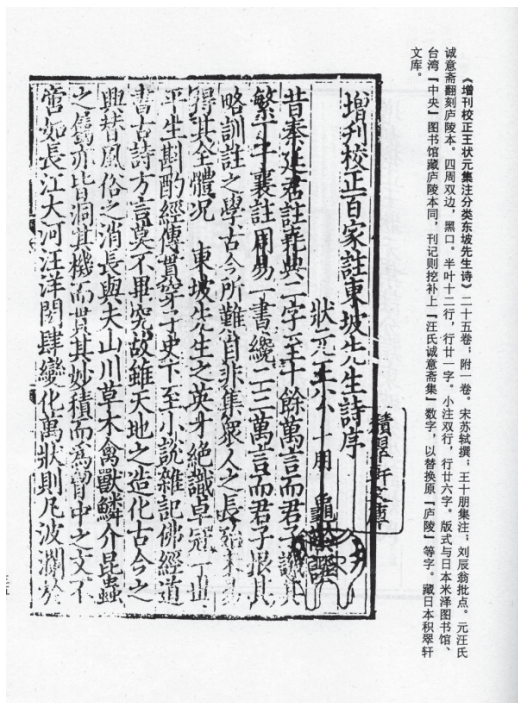 《增刊校正王状元集注分类东坡先生诗》二十五卷；附一卷。宋苏轼撰；王十朋集注；刘辰翁批点。元汪氏
诚意斋翻刻庐陵本。四周双边，黑口。半叶十二行，行廿一字。小注双行，行廿六字。版式与日本米泽图书馆、
台湾「中央」图书馆藏庐陵本同，刊记则挖补上「汪氏诚意斋集」数字，以替换原「庐陵」等字。藏日本积翠轩
文库。
積翠軒文庫
增刊校正百家註東坡先生詩序
狀元王公 十朋 龜齡
昔秦延君註堯典二字至十餘萬言而君子譏其
繁丁子襄註周易一書纔二三萬言而君子恨其
略訓註之學古今所難自非集衆人之長殆未易
得其全體況 東坡先生之英才絕識卓冠一世
平生斟酌經傳貫穿子史下至小說雜記佛經道
書古詩方言莫不畢究故雖天地之造化古今之
興替風俗之消長與夫山川草木禽獸鱗介昆蟲
之屬亦皆洞其機而貫其妙積而爲胷中之文不
啻如長江大河汪洋閎肆變化萬狀則凡波瀾於